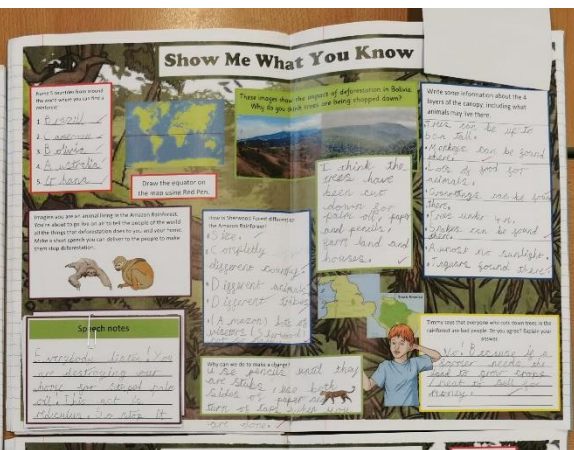 Show Me What You Know
Name 5 countries from around
the world where you can find a
rainforest
1. Brazil
2. Cameroon
3. Bolivia
4. Australia
5. Ghana
Draw the equator on
the map using Red Pen.
These images show the impact of deforestation in Bolivia.
Why do you think trees are being chopped down?
I think the
trees have
been cut
down for
paper and pencils,
farm land and
houses.
Write some information about the 4
layers of the canopy, including what
animals may live there.
Trees can be up to
tall.
Monkeys can be found
there.
Lots of food for
animals.
can be found
there.
Trees under 4m.
Snakes can be found
there.
Almost no sunlight.
Jaguars found there
Imagine you are an animal living in the Amazon Rainforest.
You're about to go on air to tell the people of the world
all the things that deforestation does to you and your home.
Make a short speech you can deliver to the people to make
them stop deforestation.
How is Sherwood Forest different to
the Amazon Rainforest?
Size.
Completly
different country.
Different animals
Different tribes
(Amazon) lots of
Speech notes
Everybody listen! You
are destroying our
home for stupid
oil! This not is
So stop it
Why can we do to make a change?
Use pencils until they
are stubs, use both
sides of paper and
turn of taps when you
are done.
Timmy says that everyone who cuts down trees in the
rainforest are bad people. Do you agree? Explain your
answer.
No! Because if a
farmer needs the
land to grow crops
to sell for
money.